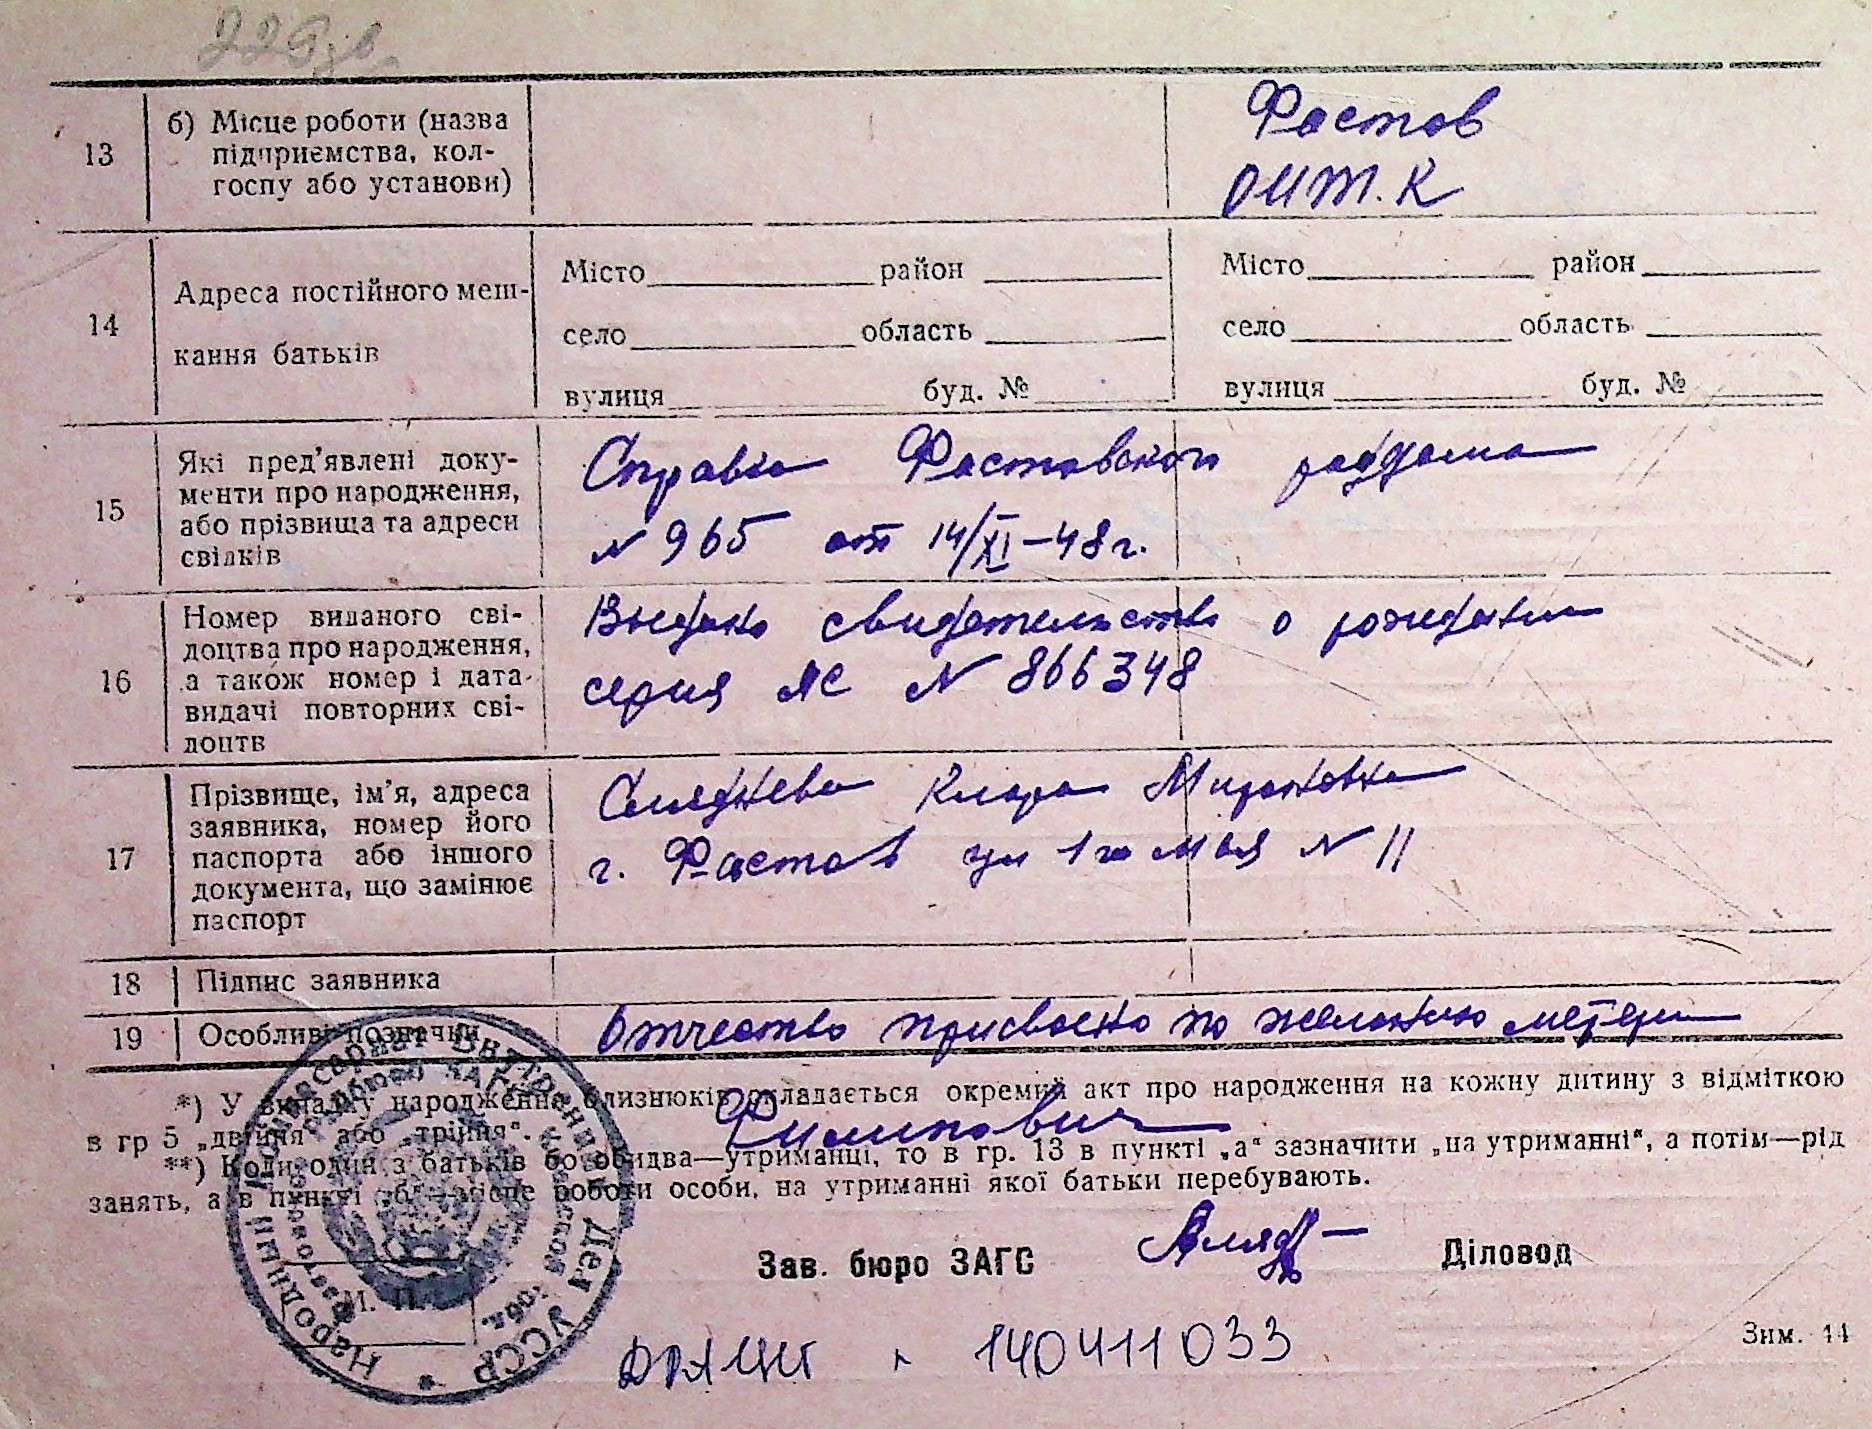 13
б) Місце роботи (назва
підприємства, кол-
госпу або установи)
Фастов
ОИТ.К
14
Адреса постійного меш-
кання батьків
Місто район
село область
вулиця буд. №
Місто район
село область
вулиця буд. №
15
Які пред'явлені доку-
менти про народження,
або прізвища та адреси
свідків
Справка Фастовского роддома
№ 965 от 14/XI-48 г.
16
Номер виданого сві-
доцтва про народження,
а також номер і дата
видачі повторних сві-
доцтв
Выдано свидетельство о рождении
серия ЯС № 866348
17
Прізвище, ім'я, адреса
заявника, номер його
паспорта або іншого
документа, що замінює
паспорт
Клара Мироновна
г. Фастов ул 1го мая № 11
18 Підпис заявника
19 Особливі позначки
Отчество присвоено по желанию матери
Филипович
*) У випадку народження близнюків складається окремий акт про народження на кожну дитину з відміткою
в гр 5 „двійня" або „трійня".
**) Коли один з батьків бо обидва—утриманці, то в гр. 13 в пункті „а" зазначити „на утриманні", а потім—рід
занять, а в пункті „б"—місце роботи особи, на утриманні якої батьки перебувають.
Народний Комісаріат Внутренних Дел УССР
М. П.
Зав. бюро ЗАГС Діловод
ДРАЦСГ 140411033
Зим. 44